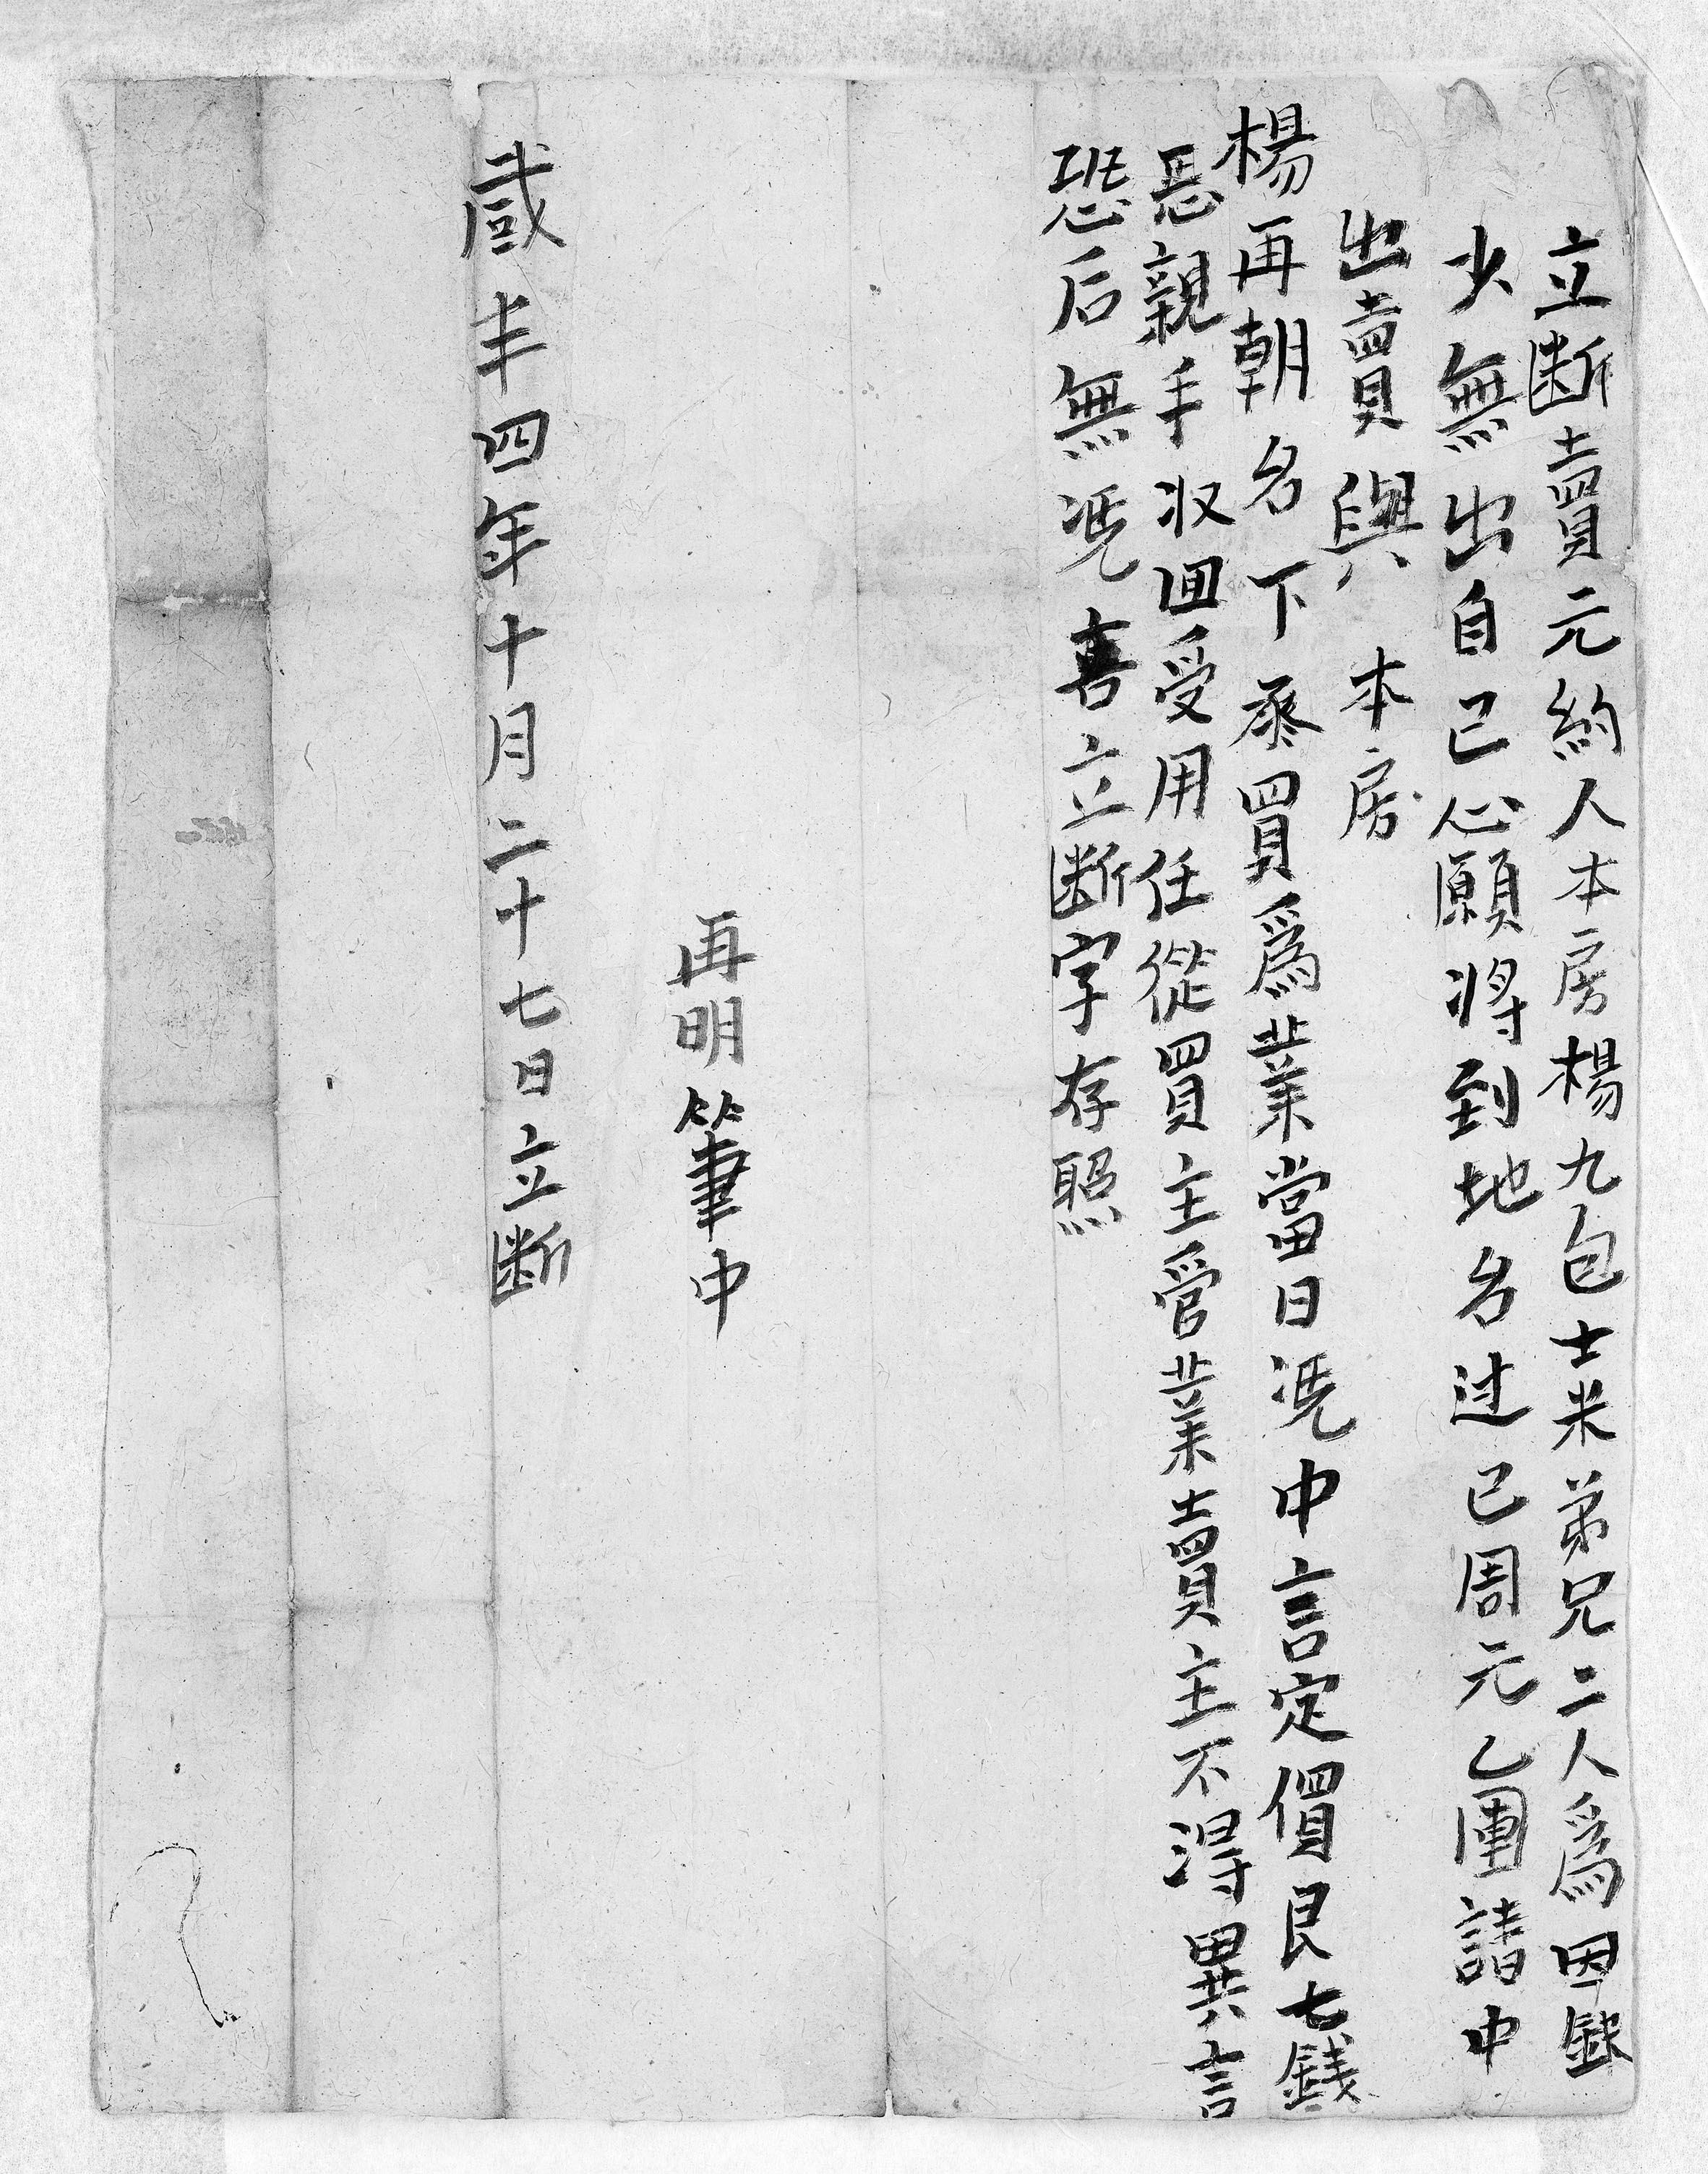 立断賣元約人本房楊九包士米弟兄二人爲因錢
少無出自己心願将到地名过已周元乙團請中
出賣與 本房
楊再朝名下承買爲業當日憑中言定價艮七錢
恁親手收回受用任從買主管業賣主不淂異言
恐后無憑 立断字存照
再明筆中
咸丰四年十月二十七日立断